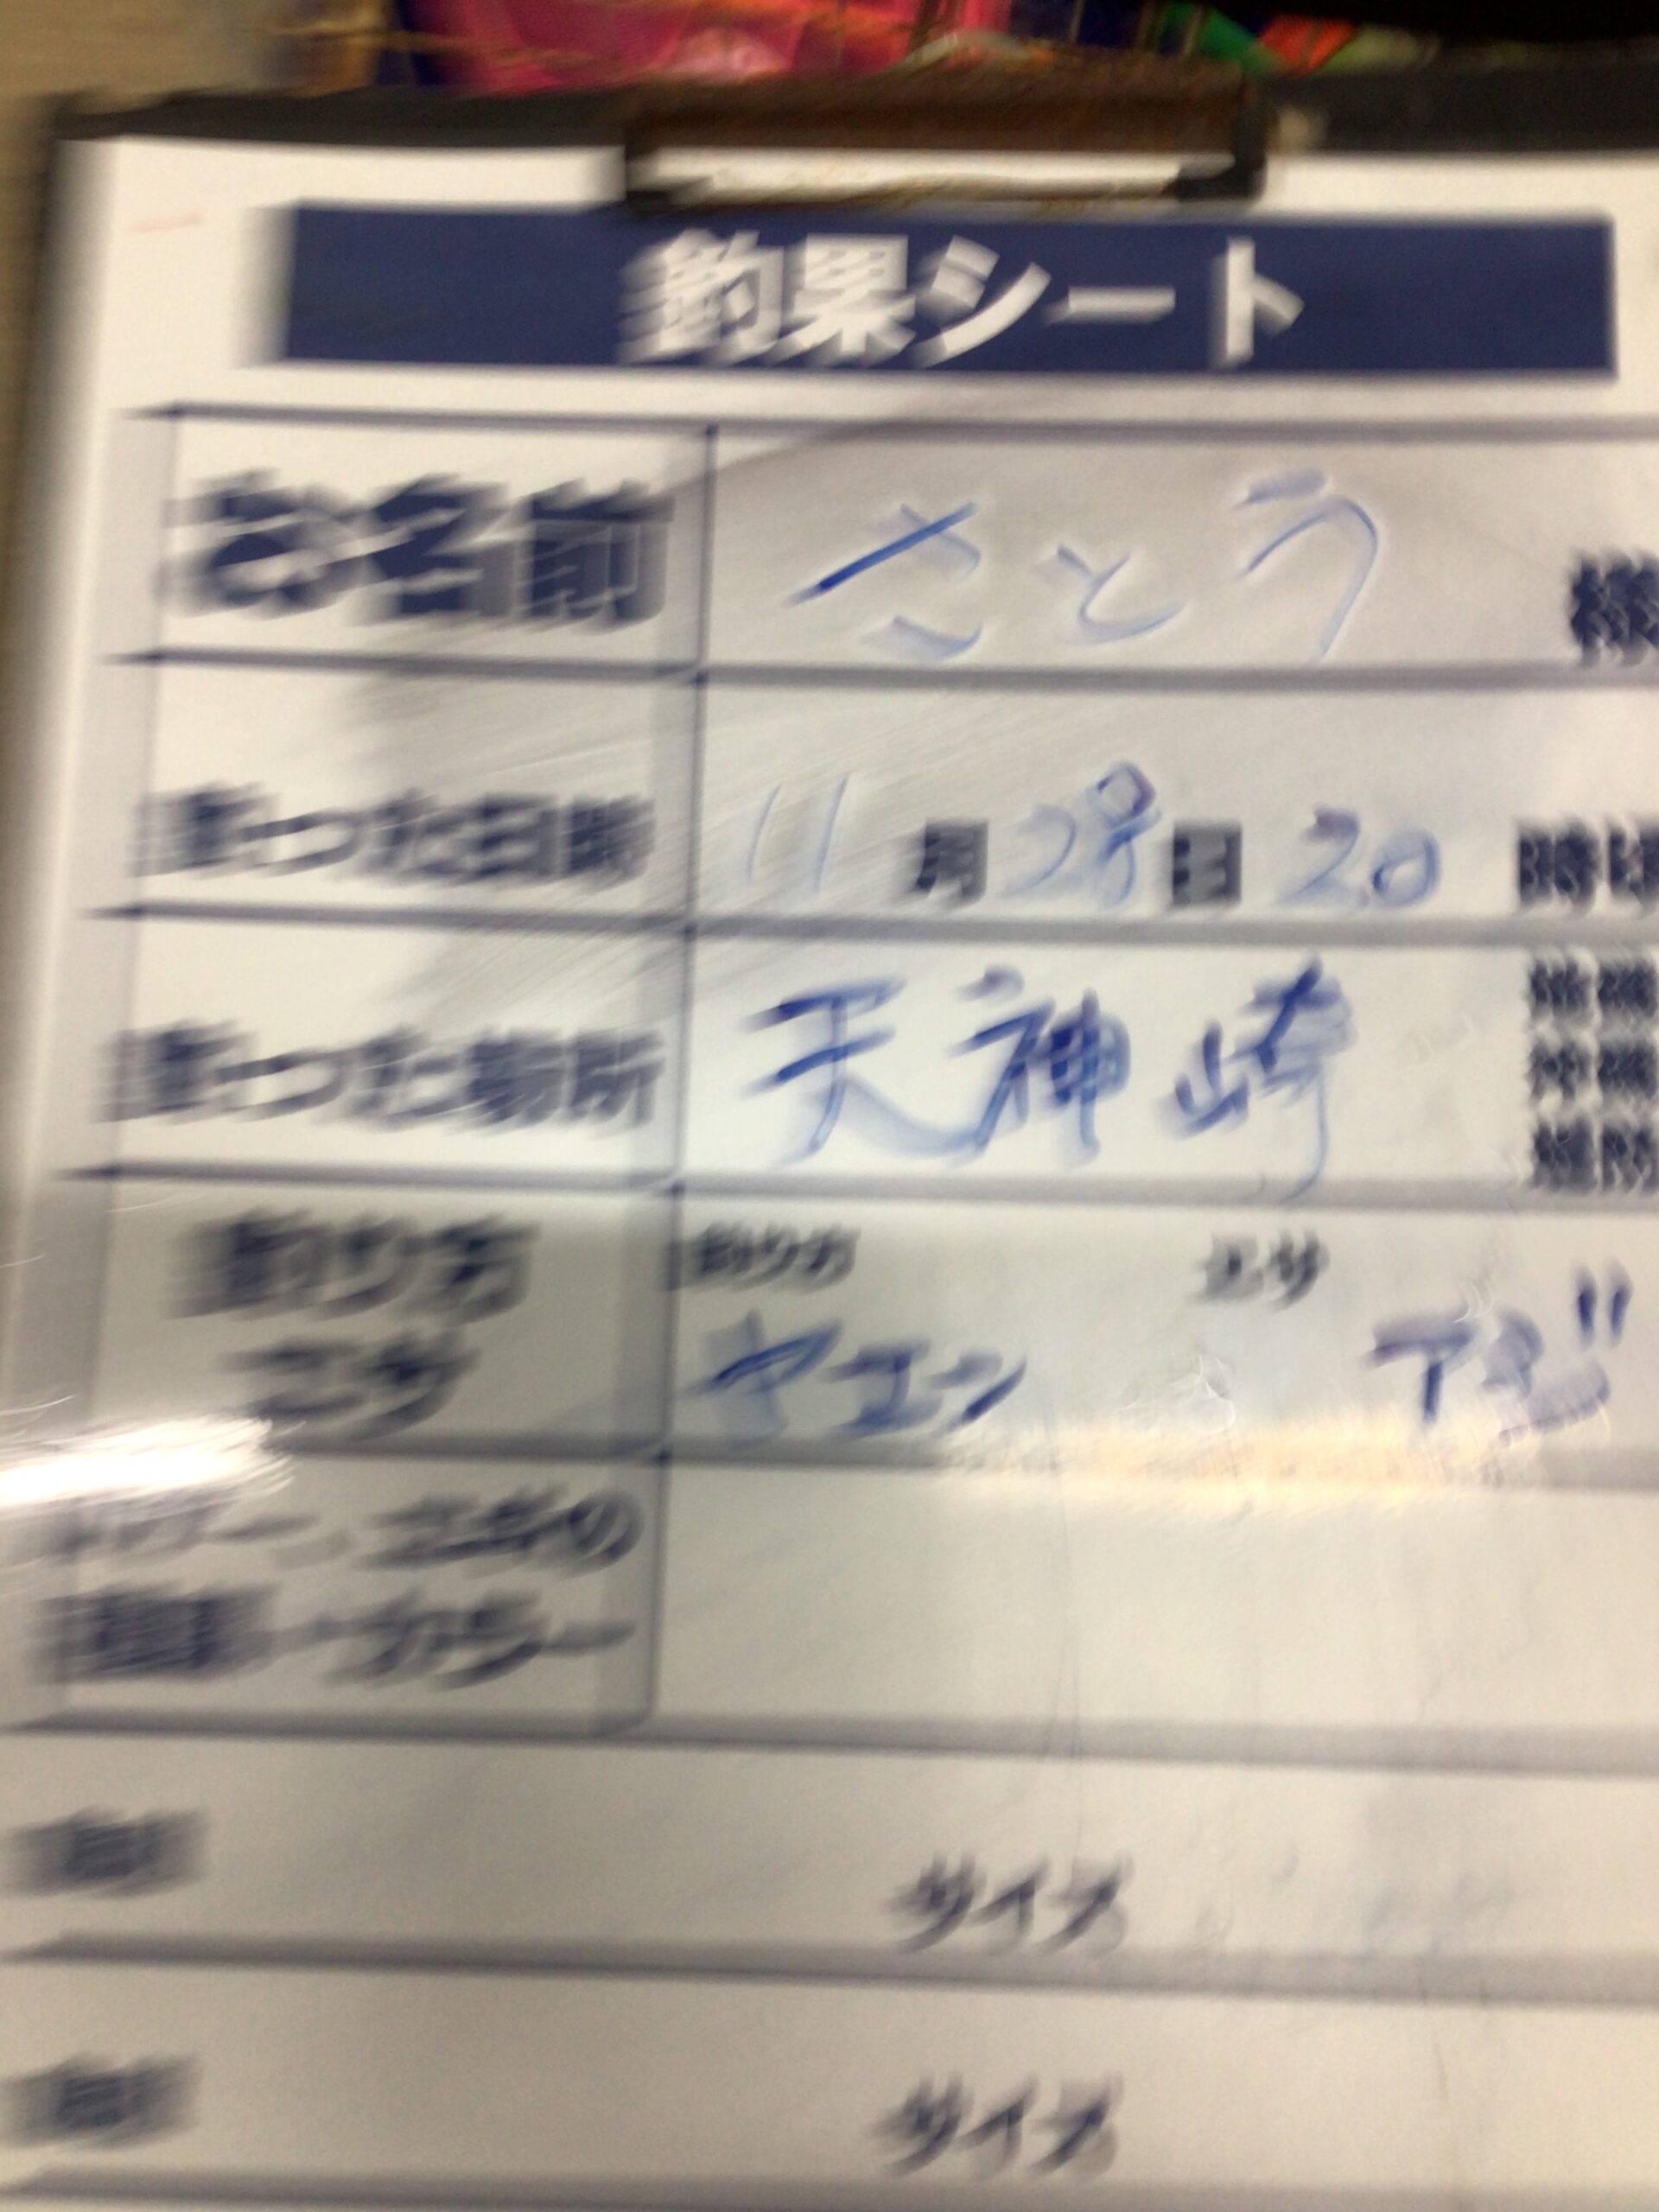 釣果シート
お名前 さとう 様
釣った日時 11月28日20時頃
釣った場所 天神崎
釣り方 釣り方 エサ
エサ ヤエン アジ
エギの
カラー
サイズ
サイズ